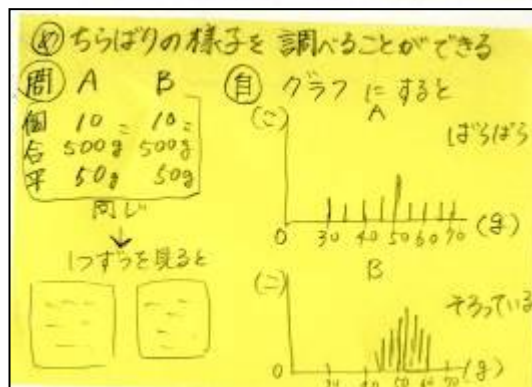 め ちらばりの様子を調べることができる
問 A B
個 10こ 10こ
合 500g 500g
平 50g 50g
同じ
↓
1つずつを見ると
自 グラフにすると
A
(こ)
ばらばら
0 30 40 50 60 70 (g)
B
(こ)
そろっている
0 30 40 50 60 70 (g)